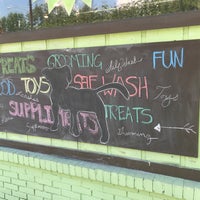 TREATS GROOMING Self Wash FUN
FOOD TOYS SELF WASH Toys
SUPPLI TREATS
Grooming